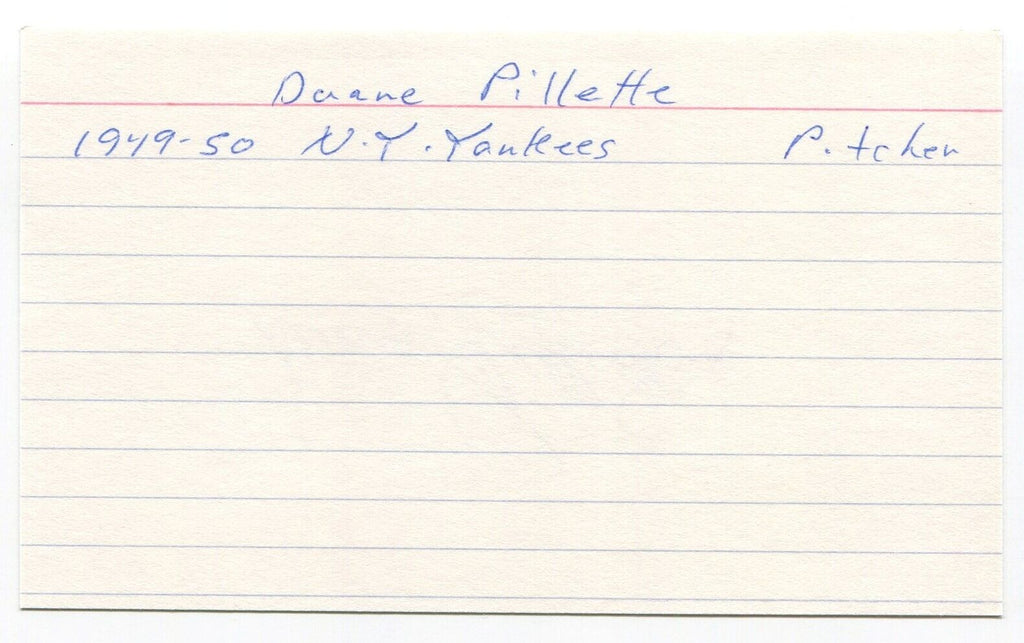 Duane Pillette
1949-50 N.Y. Yankees Pitcher